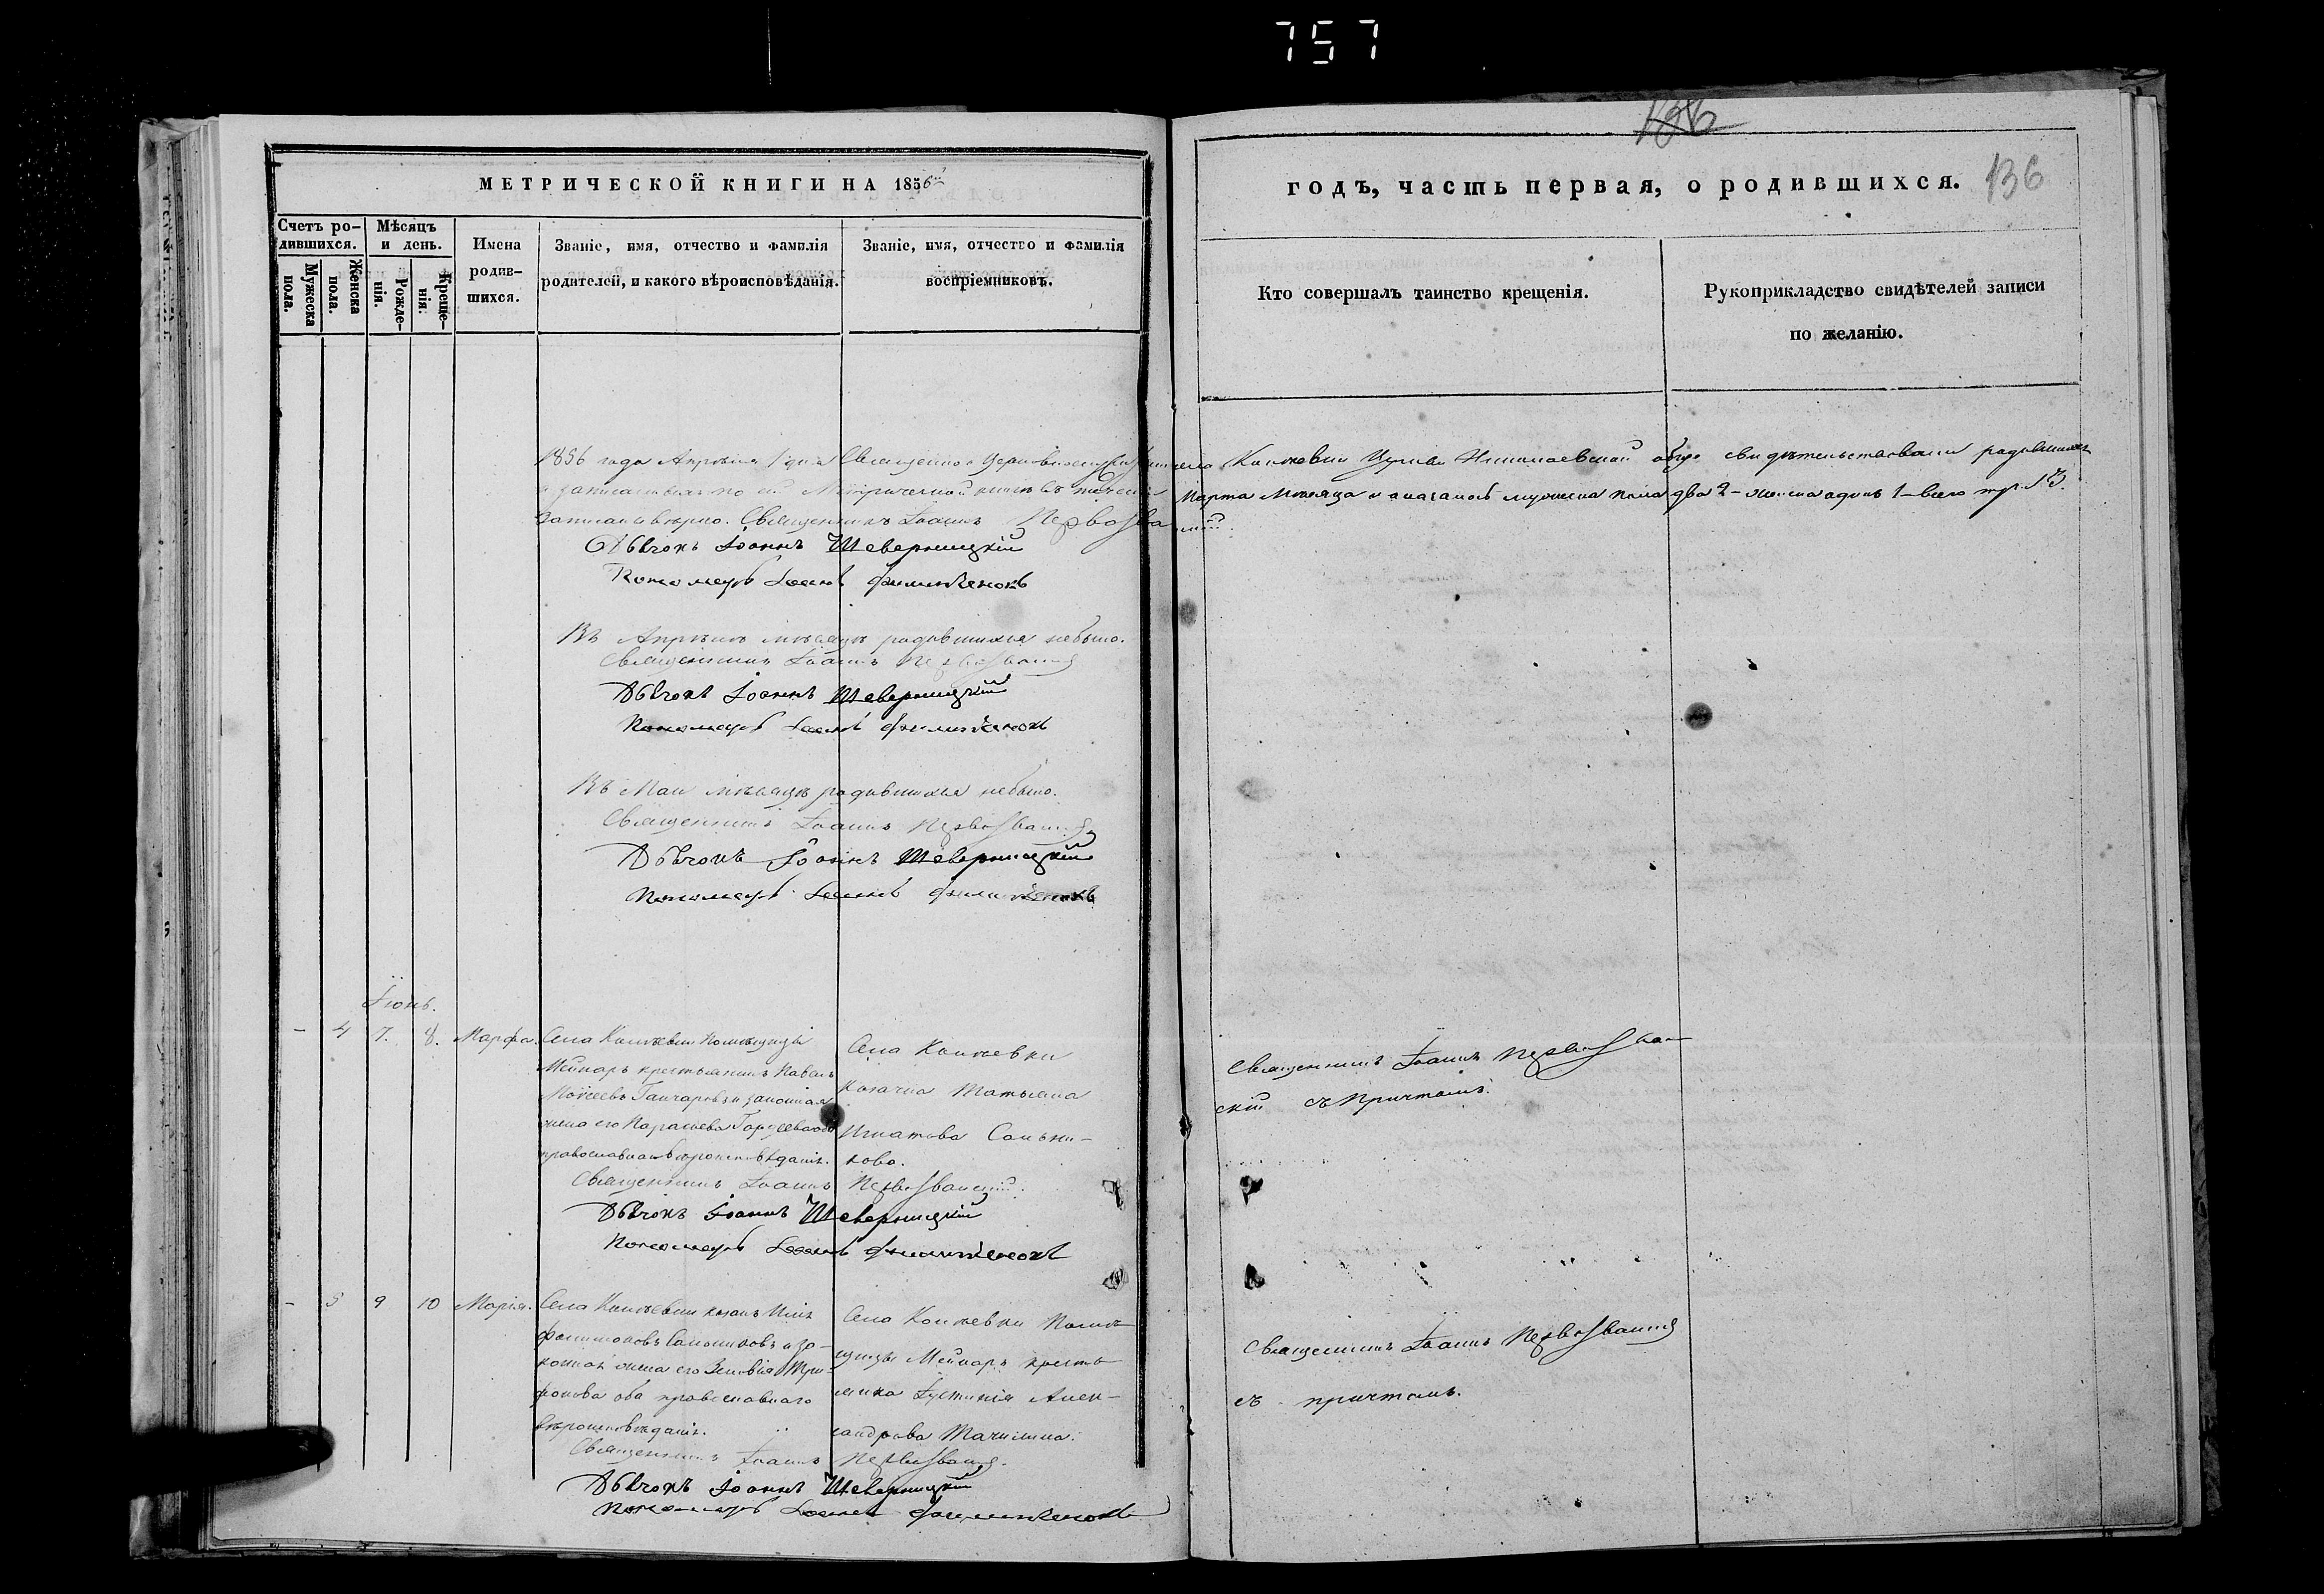 757
136
МЕТРИЧЕСКОЙ КНИГИ НА 1856й
годъ, часть первая, о родившихся. 136
Счетъ родившихся.
Мужеска пола.
Женска пола.
Мѣсяцъ и день.
Рожденія.
Крещенія.
Имена родившихся.
Званіе, имя, отчество и фамилія
родителей, и какого вѣроисповѣданія.
Званіе, имя, отчество и фамилія
воспріемниковъ.
Кто совершалъ таинство крещенія.
Рукоприкладство свидѣтелей записи
по желанію.
1856 года Апрѣля 1 дня Священно и церковнослужители села церкви Николаевской свидѣтельствовали родившихся
и записанныхъ по сей Метрической книгѣ въ Марта мѣсяца и оказалось мужеска пола два 2 – женска одинъ 1 – всего три 3.
Записано вѣрно. Священникъ Іоаннъ Первозванскій
Дьячокъ Іоаннъ Шеверницкій
Пономарь Іоаннъ
Въ Апрѣлѣ мѣсяцѣ родившихся небыло.
Священникъ Іоаннъ Первозванскій
Дьячокъ Іоаннъ Шеверницкій
Пономарь Іоаннъ
Въ Маи мѣсяцѣ родившихся небыло.
Священникъ Іоаннъ Первозванскій
Дьячокъ Іоаннъ Шеверницкій
Пономарь Іоаннъ
Іюнь.
– 4 7. 8. Марфа.
Села помѣщицы
Мейнаръ крестьянинъ Павелъ
Моѵсеевъ Ганчаровъ и законная
жена его оба
православнаго вѣроисповѣданія.
Села
козачка Татьяна
Игнатова
кова.
Священникъ Іоаннъ Первозван
скій съ причтомъ.
Священникъ Іоаннъ Первозванскій.
Дьячокъ Іоаннъ Шеверницкій
Пономарь Іоаннъ
– 5 9 10 Марія.
Села козакъ
и за-
конная жена его Зеновія Три-
фонова оба православнаго
вѣроисповѣданія.
Села помѣ-
щицы Мейнаръ кресть-
янка Іустинія Алек-
сандрова
Священникъ Іоаннъ Первозванскій
съ причтомъ.
Священникъ Іоаннъ Первозванскій.
Дьячокъ Іоаннъ Шеверницкій
Пономарь Іоаннъ